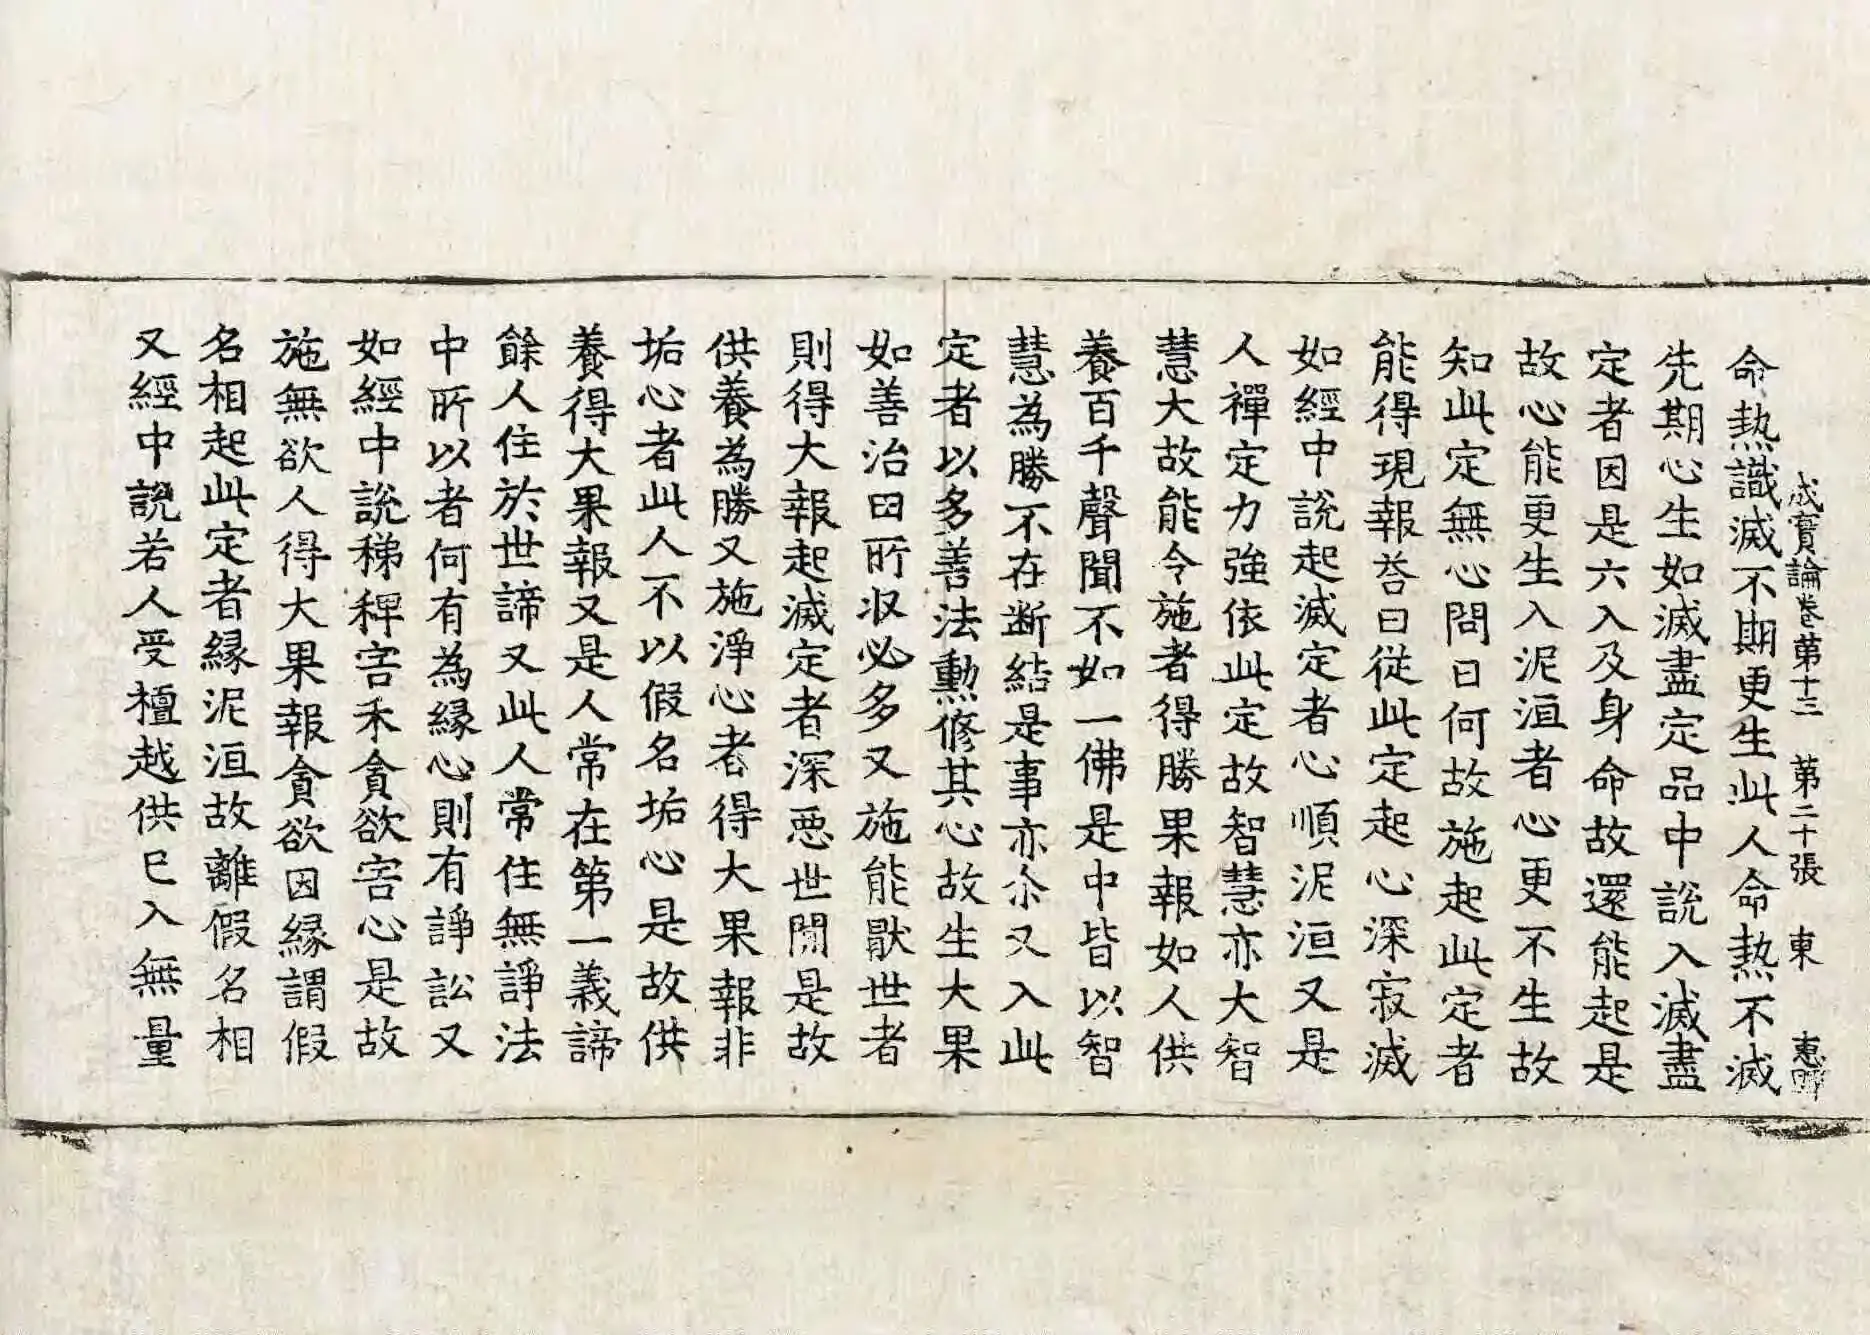 成實論卷第十三　第二十張　東　惠
命熱識滅不期更生此人命熱不滅
先期心生如滅盡定品中說入滅盡
定者因是六入及身命故還能起是
故心能更生入泥洹者心更不生故
知此定無心問曰何故施起此定者
能得現報荅曰從此定起心深寂滅
如經中說起滅定者心順泥洹又是
人禪定力強依此定故智慧亦大智
慧大故能令施者得勝果報如人供
養百千聲聞不如一佛是中皆以智
慧為勝不在断結是事亦尒又入此
定者以多善法勲修其心故生大果
如善治田所収必多又施能猒世者
則得大報起滅定者深惡世間是故
供養為勝又施淨心者得大果報非
垢心者此人不以假名垢心是故供
養得大果報又是人常在第一義諦
餘人住於世諦又此人常住無諍法
中所以者何有為緣心則有諍訟又
如經中說稊稗害禾貪欲害心是故
施無欲人得大果報貪欲因緣謂假
名相起此定者緣泥洹故離假名相
又經中說若人受檀越供已入無量